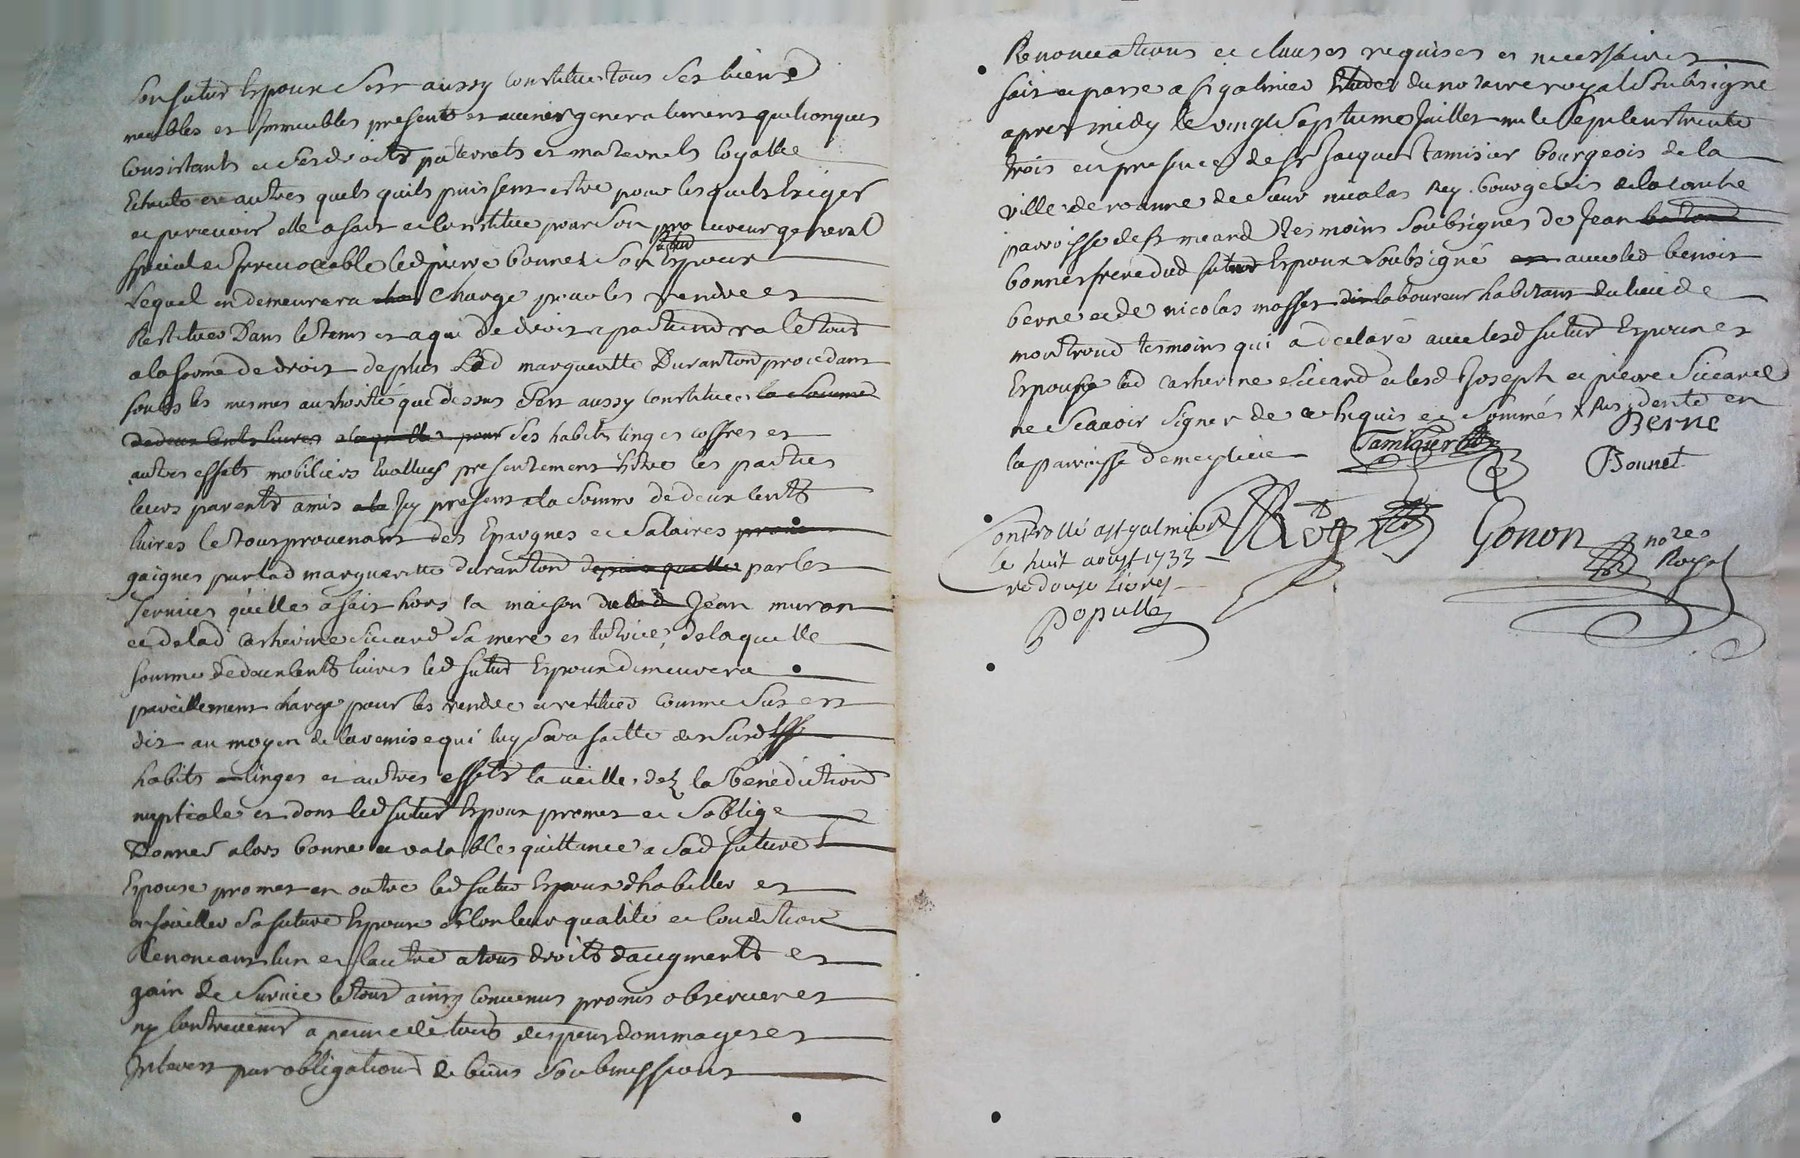 Son futur Epoux Sest aussy Constitue tous Ses biens
meubles et Immeubles presents et avenir generalement quelconques
Consistants en Ses droits paternels et maternels Loyalle
Echute et autres quels quils puissent estre pour lesquels Exiger
et percevoir elle a fait et Constitue pour Son procureur general
Special et Irrevocable led pierre bonnet Son futur Epoux
Lequel en demeurera Charge pour les rendre et
Restituer Dans le tems et a qui de droit apartiendra le tout
a la forme de droit de plus Lad margueritte Duranton procedant
soubs les mesmes authorité que dessus Sest aussy Constituee la Somme
de deux Cents livres a laquelle pour Ses habits linges coffres et
autres effets mobiliers Evallues presentement Entre les parties
leurs parents amis Icy present a la Somme de deux Cents
livres le tout provenant des Epargnes et Salaires
gaignes par lad margueritte duranton par les
Services quelle a fait hors la maison dud Jean muron
et de lad Catherine Siccard Sa mere et tutrice, de laquelle
Somme de deux Cents livres led futur Epoux demeurera
pareillement charge pour les rendre et restituer Comme Sus est
dit au moyen de la remise qui luy Sera faitte de Susd
habits linges et autres effets la veille de la benediction
nuptiale et dont led futur Epoux promet et Soblige
Donner alors bonne et valable quittance a Sad future
Epouse promet en outre led futur Epoux dhabiller et
en joailler Sa future Epouse Selon leur qualité et Condition
Renonceant lun et lautre a tous droits daugments et
gain de Survie le tout ainsy Convenus promis observer et
ny Contrevenir a peine de tous despens dommages et
Interest par obligation de biens Soubmissions
Renonciations et clauses requises et necessaires
fait et passe a St galmier Etude du notaire royal Soubsigne
apres midy le vingt Septieme Juillet mil Sept Cens trente
trois en presence de Sr Jacques tamisier bourgeois de la
ville de roanne de Sieur nicolas Rey bourgeois de la
parroisse de St meard tesmoins Soubsignes de Jean
bonnet frere dud futur Epoux Soubsigné avec led benoit
berne et de nicolas mosset laboureur habitant du lieu de
montroud tesmoins qui a declaré avec lesd futur Epoux et
Epouse lad Catherine Siccard et lesd Joseph et pierre Siccard
ne Scavoir Signer de ce Enquis et Sommés x Residente en
la parroisse de meylieu
Tamisier Berne
Bonnet
Controllé a St galmier
le huit aoust 1733
re douze livres
Populle
Rey
Gonon nore
Royal